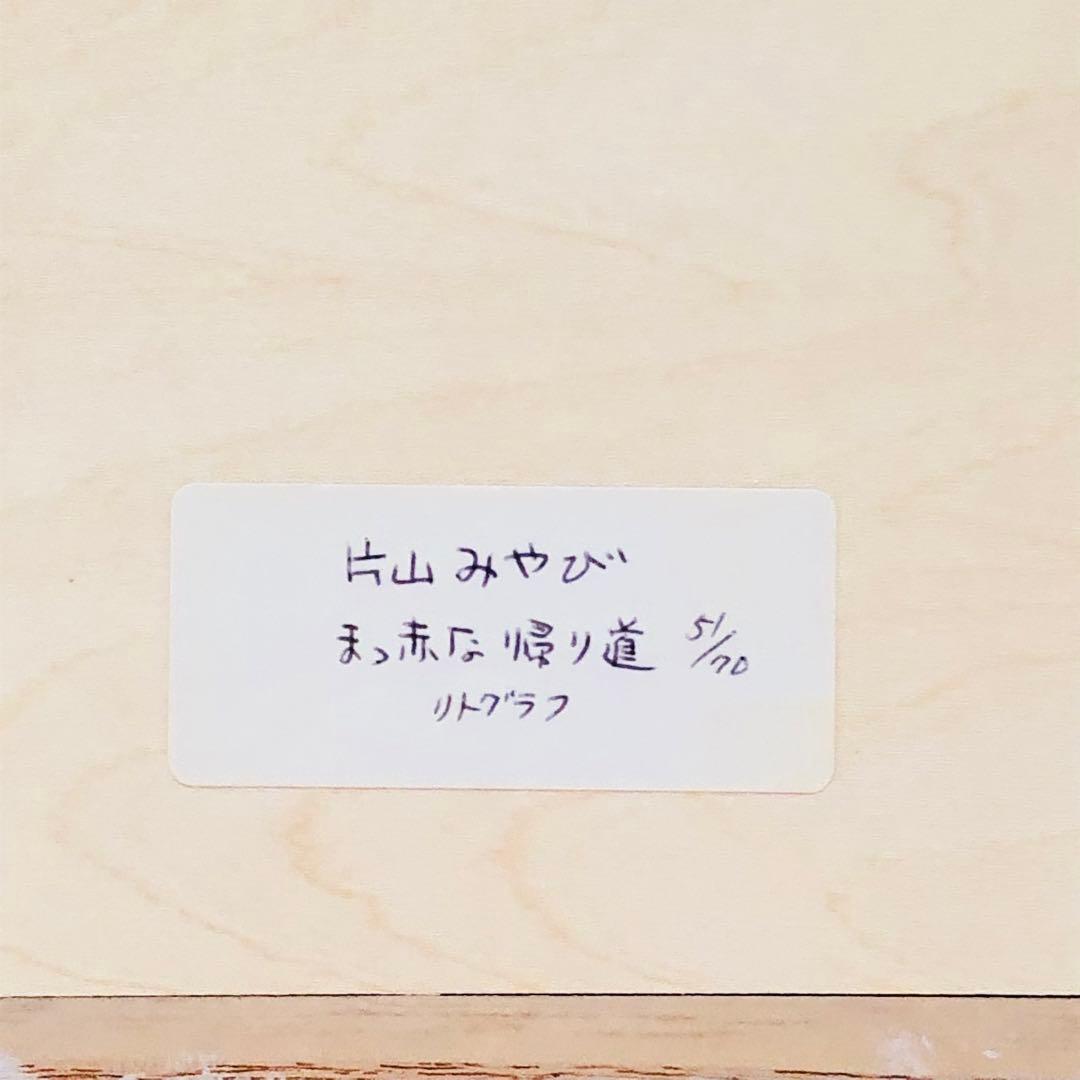 片山 みやび
まっ赤な帰り道 51/70
リトグラフ